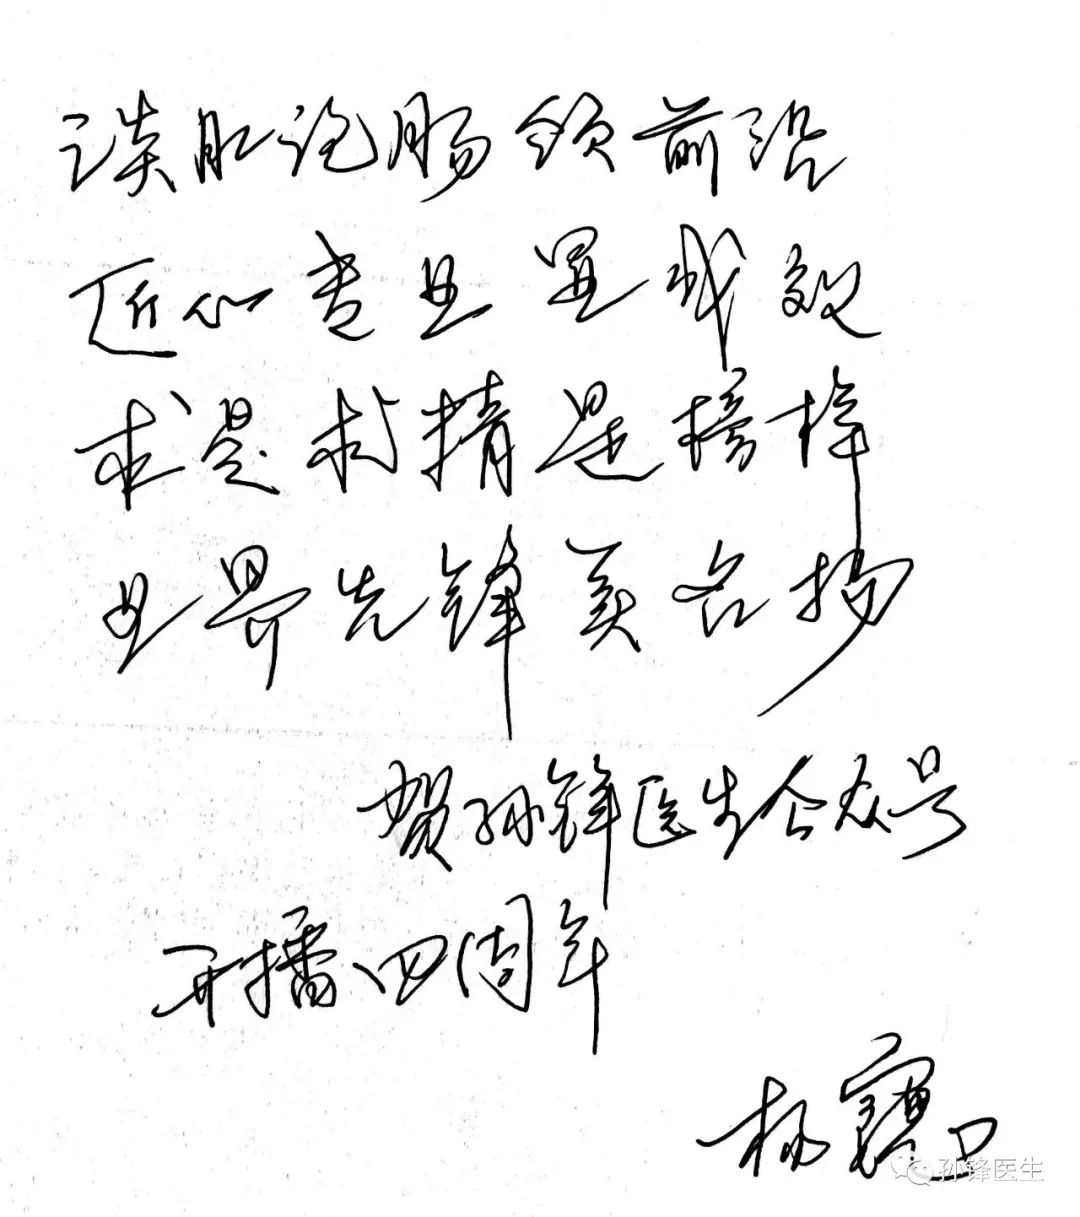 谈肛论肠领前沿
匠心专业显成效
求是求精是榜样
业界先锋美名扬
贺孙锋医生公众号
开播四周年
杨
孙锋医生